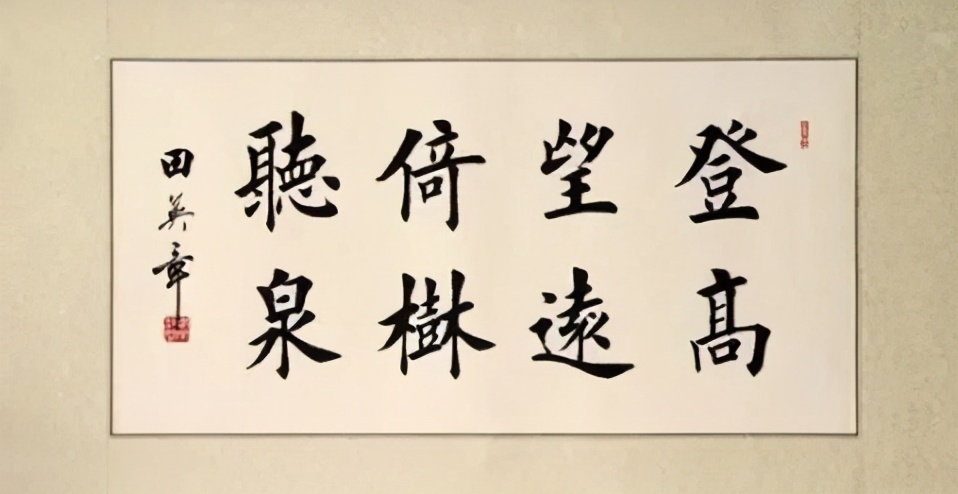 登髙
望遠
倚樹
聽泉
田英章